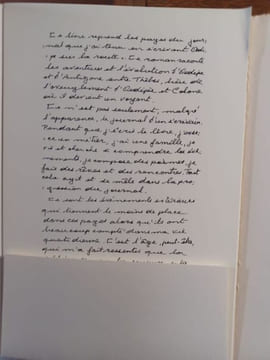 Ce livre reprend les pages du jour-
nal que j'ai tenu en écrivant Œdi-
pe sur la route. Ce roman raconte
les aventures et l'évolution d'Œdipe
et d'Antigone entre Thèbes, lieu de
l'aveuglement d'Œdipe et Colone
où il devient un voyant.
Ce n'est pas seulement, malgré
l'apparence, le journal d'un écrivain.
Pendant que j'écris le livre, j'exer-
ce un métier, j'ai une famille, je
vis et cherche à comprendre les évé-
nements, je compose des poèmes, je
fais des rêves et des rencontres, tout
cela agit et se mêle dans la pro-
gression du journal.
Ce sont les événements extérieurs
qui tiennent le moins de place
dans ces pages alors qu'ils ont
beaucoup compté dans ma vie
quotidienne. C'est l'âge, peut-être,
qui m'a fait ressentir que